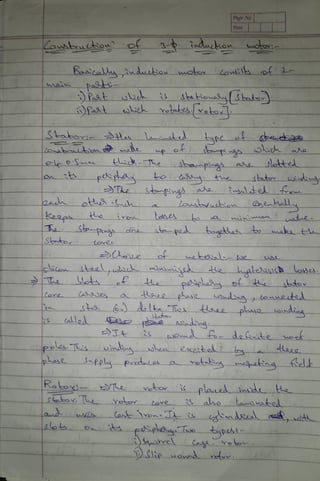 Page No
Date
Construction of 3-ϕ induction motor:-
Basically, induction motor consists of 2-
main parts:-
i) Part which is stationary [Stator]
ii) Part which rotates [rotor].
Stator:- ⇒ Has laminated type of
construction made up of stampings which are
0.4 0.5mm thick. The stampings are slotted
on its periphery to carry the stator winding
⇒ The stampings are insulated from
each other. Such a construction essentially
keeps the iron losses to a minimum value.
The stampings are stamped together to make the
stator core.
⇒ Choice of material:- we use
silicon steel, which minimized the hysterisis losses.
⇒ The slots of the periphery of the stator
core carries a three phase winding, connected
in star (or) delta. This three phase winding
is called stator winding.
⇒ It is wound for definite no of
poles. This winding when excited by a three
phase supply produces a rotating magneting field
Rotor:- ⇒ The rotor is placed inside the
Stator. The rotor core is also laminated
and uses cast iron. It is cylindrical, with
slots on its periphery. Two types:-
i) Squirrel cage rotor
ii) Slip wound rotor